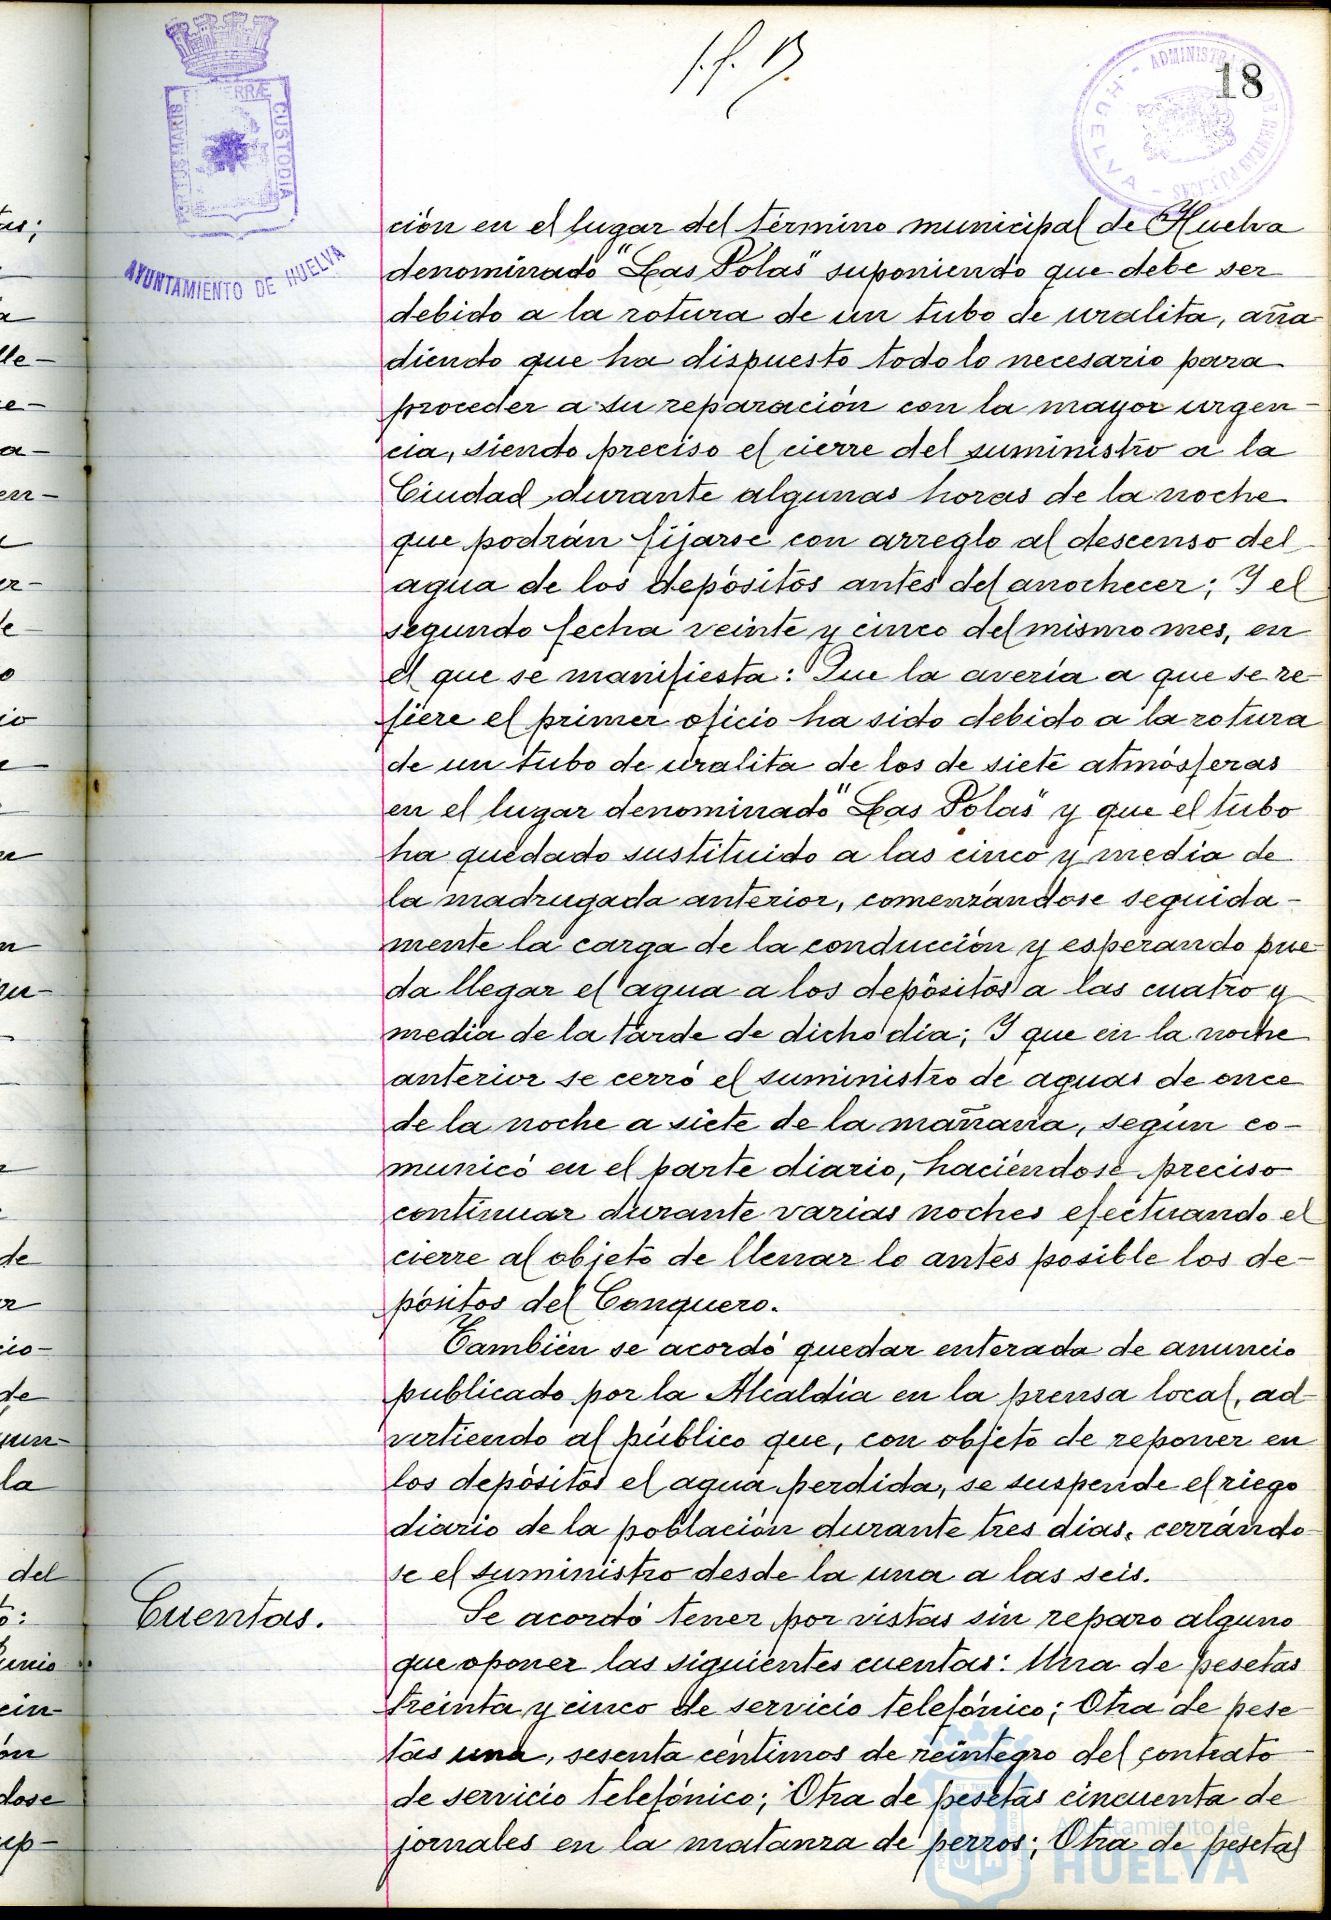 18
PORTUS MARIS
TERRÆ
CUSTODIA
AYUNTAMIENTO DE HUELVA
HUELVA
ción en el lugar del término municipal de Huelva
denominado "Las Polas" suponiendo que debe ser
debido a la rotura de un tubo de uralita, aña-
diendo que ha dispuesto todo lo necesario para
proceder a su reparación con la mayor urgen-
cia, siendo preciso el cierre del suministro a la
Ciudad durante algunas horas de la noche
que podrán fijarse con arreglo al descenso del
agua de los depósitos antes del anochecer; Y el
segundo fecha veinte y cinco del mismo mes, en
el que se manifiesta: Que la avería a que se re-
fiere el primer oficio ha sido debido a la rotura
de un tubo de uralita de los de siete atmósferas
en el lugar denominado "Las Polas" y que el tubo
ha quedado sustituido a las cinco y media de
la madrugada anterior, comenzándose seguida-
mente la carga de la conducción y esperando pue-
da llegar el agua a los depósitos a las cuatro y
media de la tarde de dicho dia; Y que en la noche
anterior se cerró el suministro de aguas de once
de la noche a siete de la mañana, según co-
municó en el parte diario, haciéndose preciso
continuar durante varias noches efectuando el
cierre al objeto de llenar lo antes posible los de-
pósitos del Conquero.
También se acordó quedar enterada de anuncio
publicado por la Alcaldía en la prensa local, ad-
virtiendo al público que, con objeto de reponer en
los depósitos el agua perdida, se suspende el riego
diario de la población durante tres dias, cerrándo-
se el suministro desde la una a las seis.
Cuentas.
Se acordó tener por vistas sin reparo alguno
que oponer las siguientes cuentas: Una de pesetas
treinta y cinco de servicio telefónico; Otra de pese-
tas una, sesenta céntimos de reintegro del contrato
de servicio telefónico; Otra de pesetas cincuenta de
jornales en la matanza de perros; Otra de pesetas
Ayuntamiento de
HUELVA